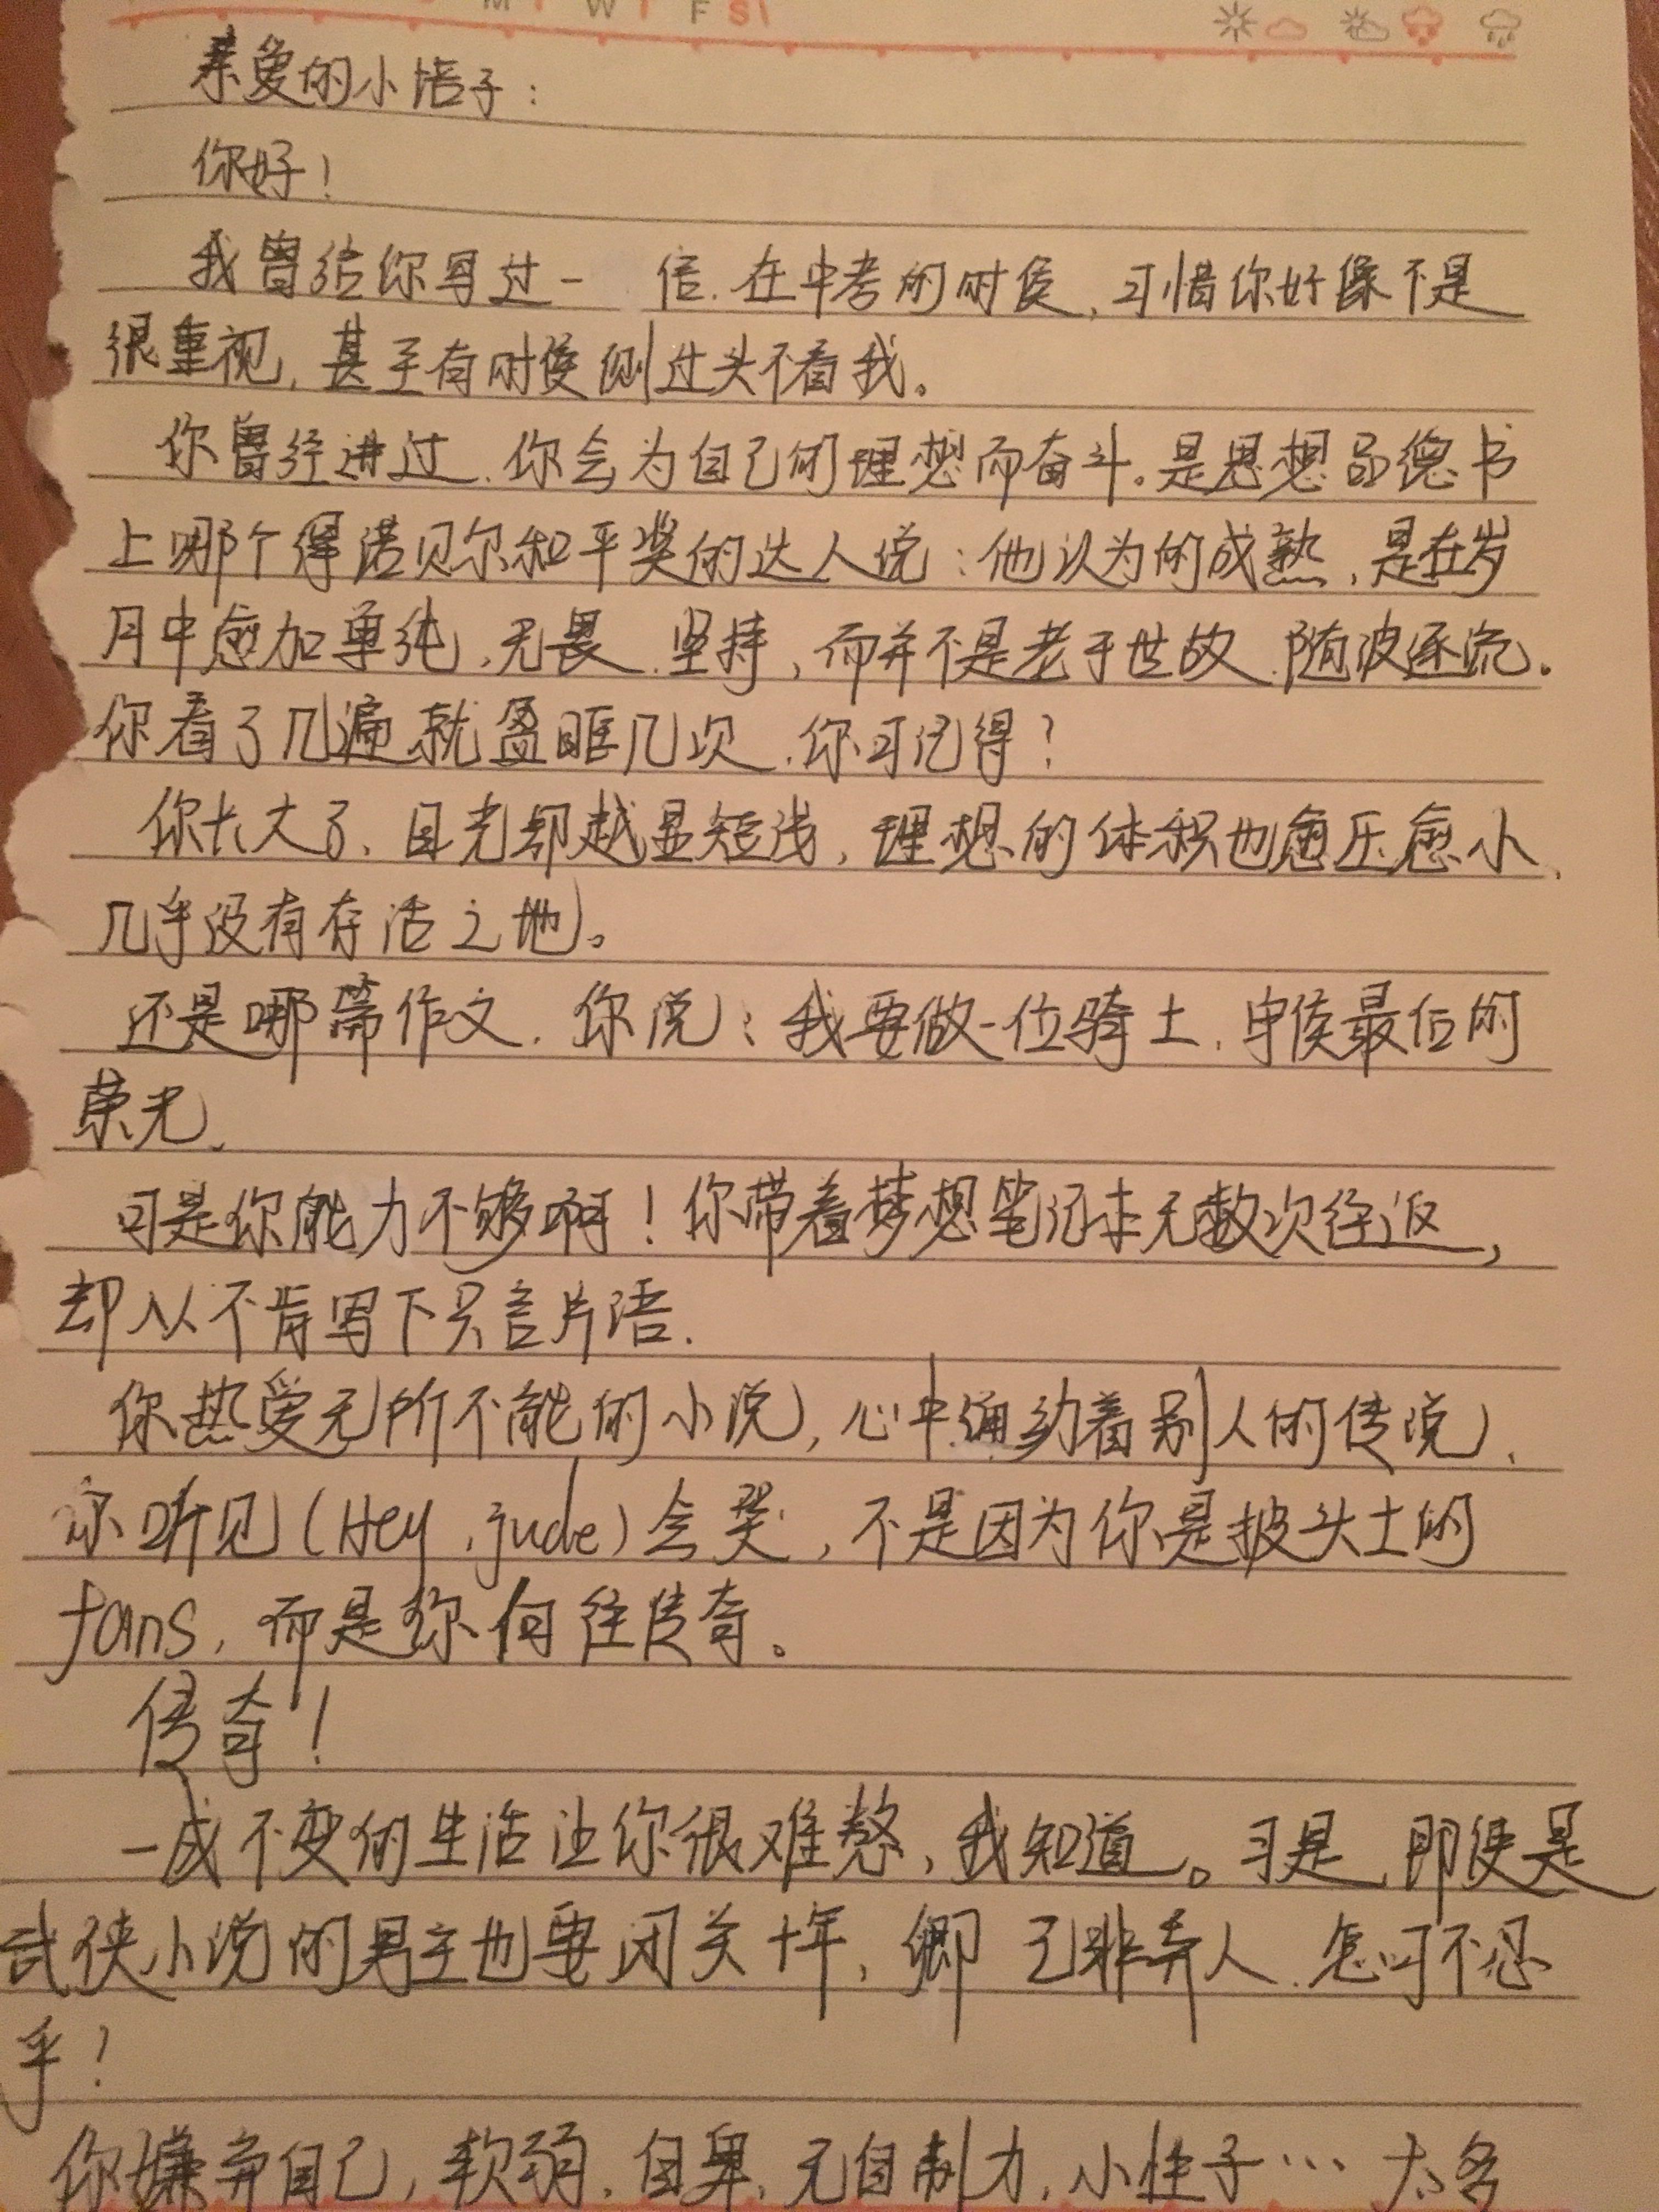 M T W T F S \
亲爱的小恬子：
你好！
我曾给你写过一 信.在中考的时侯,可惜你好像不是
很重视,甚至有时侯侧过头不看我。
你曾经讲过.你会为自己的理想而奋斗。是思想品德书
上哪个得诺贝尔和平奖的达人说:他认为的成熟,是在岁
月中愈加单纯,无畏.坚持,而并不是老于世故.随波逐流。
你看了几遍就盈眶几次.你可记得?
你长大了.目光却越显短浅,理想的体积也愈压愈小.
几乎没有存活之地。
还是哪篇作文.你说:我要做一位骑士.守侯最后的
荣光.
可是你能力不够啊!你带着梦想笔记本无数次往返,
却从不肯写下只言片语.
你热爱无所不能的小说,心中涌动着别人的传说.
你听见(Hey,jude)会哭,不是因为你是披头士的
fans,而是你向往传奇。
传奇!
一成不变的生活让你很难熬,我知道。可是,即使是
武侠小说的男主也要闭关十年,卿 已非弃人.怎可不忍
乎!
你嫌弃自己,软弱.自卑.无自制力.小性子…太多